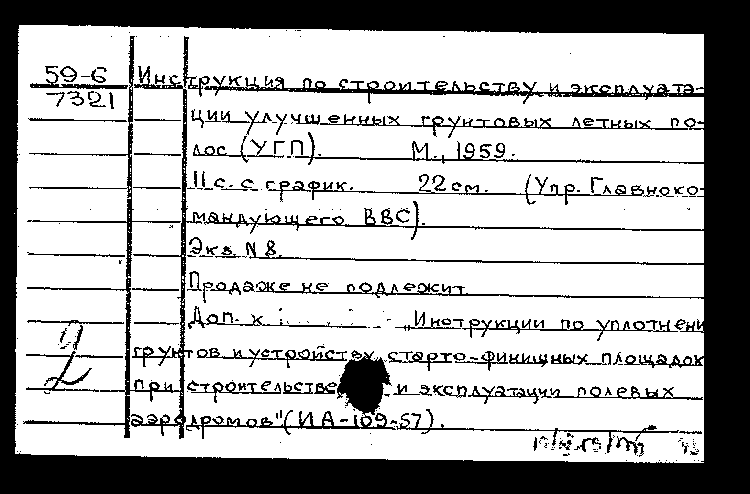 59-6
7321
Инструкция по строительству и эксплуата-
ции улучшенных грунтовых летных по-
лос (УГП). М., 1959.
11 с. с график. 22 см. (Упр. Главноко-
мандующего ВВС).
Экз. N 8.
Продаже не подлежит.
Доп. к „Инструкции по уплотнени
грунтов и устройству старто-финишных площадок
при строительстве и эксплуатации полевых
аэродромов" (ИА-109-57).
2